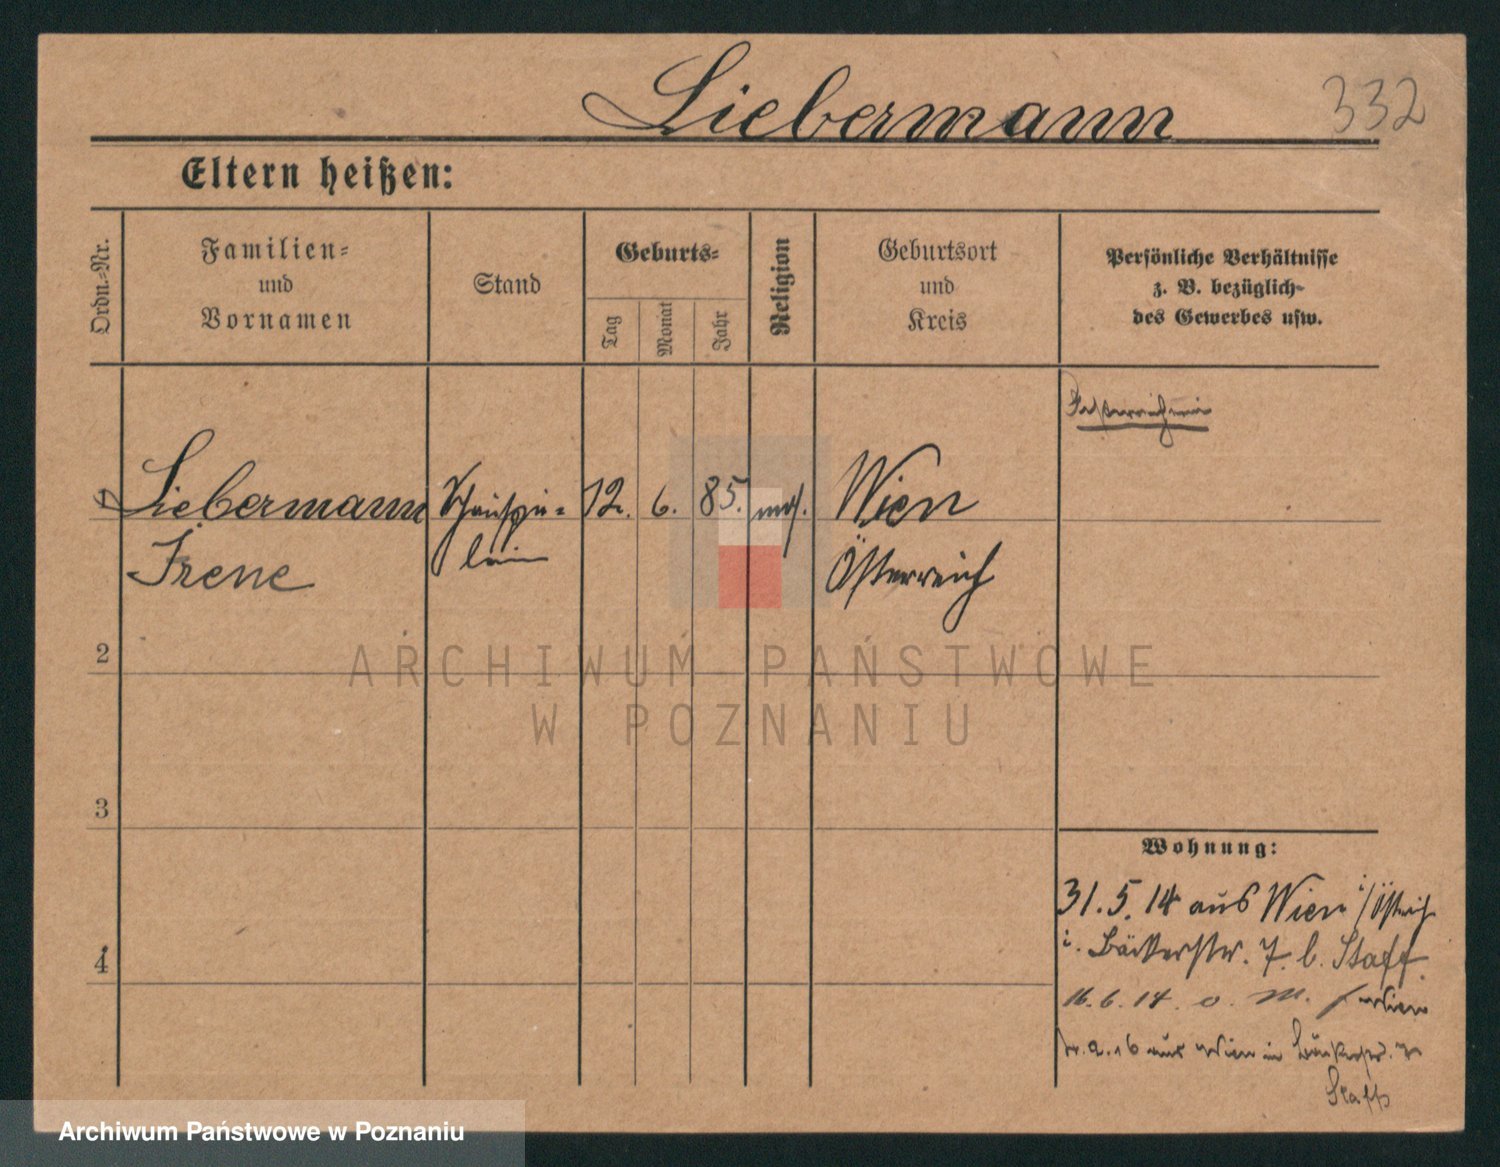 Liebermann
332
Eltern heißen:
Ordn.=Nr.
Familien=
und
Vornamen
Stand
Geburts=
Tag
Monat
Jahr
Religion
Geburtsort
und
Kreis
Persönliche Verhältnisse
z. B. bezüglich
des Gewerbes usw.
Österreicherin
Liebermann
Irene
Schauspie=
lerin
12. 6. 85.
mos.
Wien
Österreich
2
3
4
Wohnung:
31. 5. 14 aus Wien i/Östreich
i. Bäckerstr. 7. b. Staff.
16. 6. 14. o. M. Wien
16 aus Wien in Bäckerstr. 7
Staff
ARCHIWUM PAŃSTWOWE
W POZNANIU
Archiwum Państwowe w Poznaniu